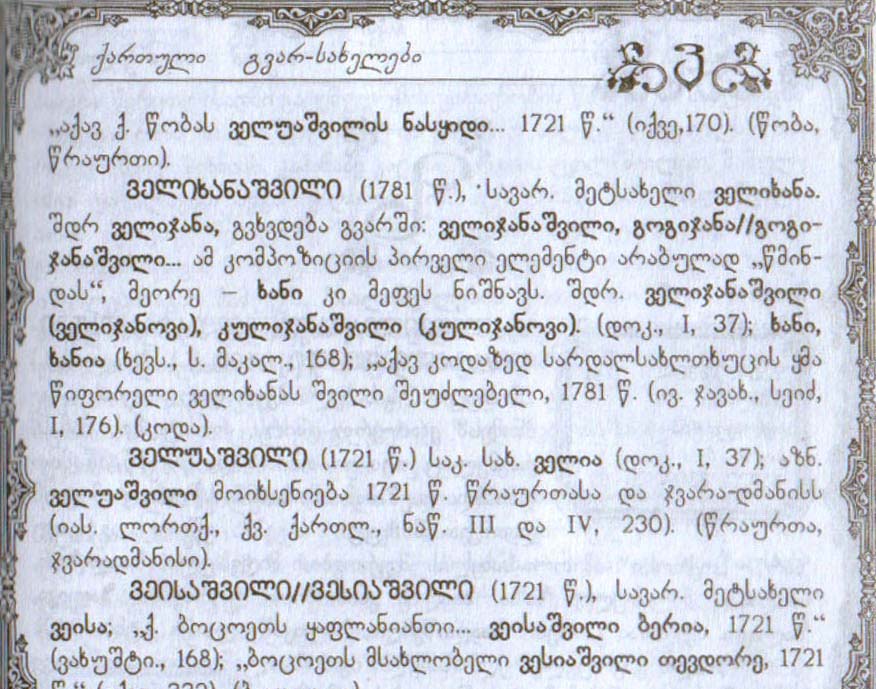 ქართული გვარ-სახელები ვ
„აქავ ქ. წობას ველუაშვილის ნასყიდი... 1721 წ.“ (იქვე,170). (წობა,
წრაურთი).
ᲕᲔᲚᲘᲮᲐᲜᲐᲨᲕᲘᲚᲘ (1781 წ.), სავარ. მეტსახელი ველიხანა.
შდრ ველიჯანა, გვხვდება გვარში: ველიჯანაშვილი, გოგიჯანა//გოგი-
ჯანაშვილი... ამ კომპოზიციის პირველი ელემენტი არაბულად „წმინ-
დას“, მეორე – ხანი კი მეფეს ნიშნავს. შდრ. ველიჯანაშვილი
(ველიჯანოვი), კულიჯანაშვილი (კულიჯანოვი). (დოკ., I, 37); ხანი,
ხანია (ხევს., ს. მაკალ., 168); „აქავ კოდაზედ სარდალსახლთხუცის ყმა
წიფორელი ველიხანას შვილი შეუძლებელი, 1781 წ. (ივ. ჯავახ., სეიძ,
I, 176). (კოდა).
ᲕᲔᲚᲣᲐᲨᲕᲘᲚᲘ (1721 წ.) საკ. სახ. ველია (დოკ., I, 37); აზნ.
ველუაშვილი მოიხსენიება 1721 წ. წრაურთასა და ჯვარა-დმანისს
(იას. ლორთქ., ქვ. ქართლ., ნაწ. III და IV, 230). (წრაურთა,
ჯვარადმანისი).
ᲕᲔᲘᲡᲐᲨᲕᲘᲚᲘ//ᲕᲔᲡᲘᲐᲨᲕᲘᲚᲘ (1721 წ.) სავარ. მეტსახელი
ვეისა; „ქ. ბოცოეთს ყაფლანიანთი... ვეისაშვილი ბერია, 1721 წ.“
(ვახუშტი., 168); „ბოცოეთს მსახლობელი ვესიაშვილი თევდორე, 1721